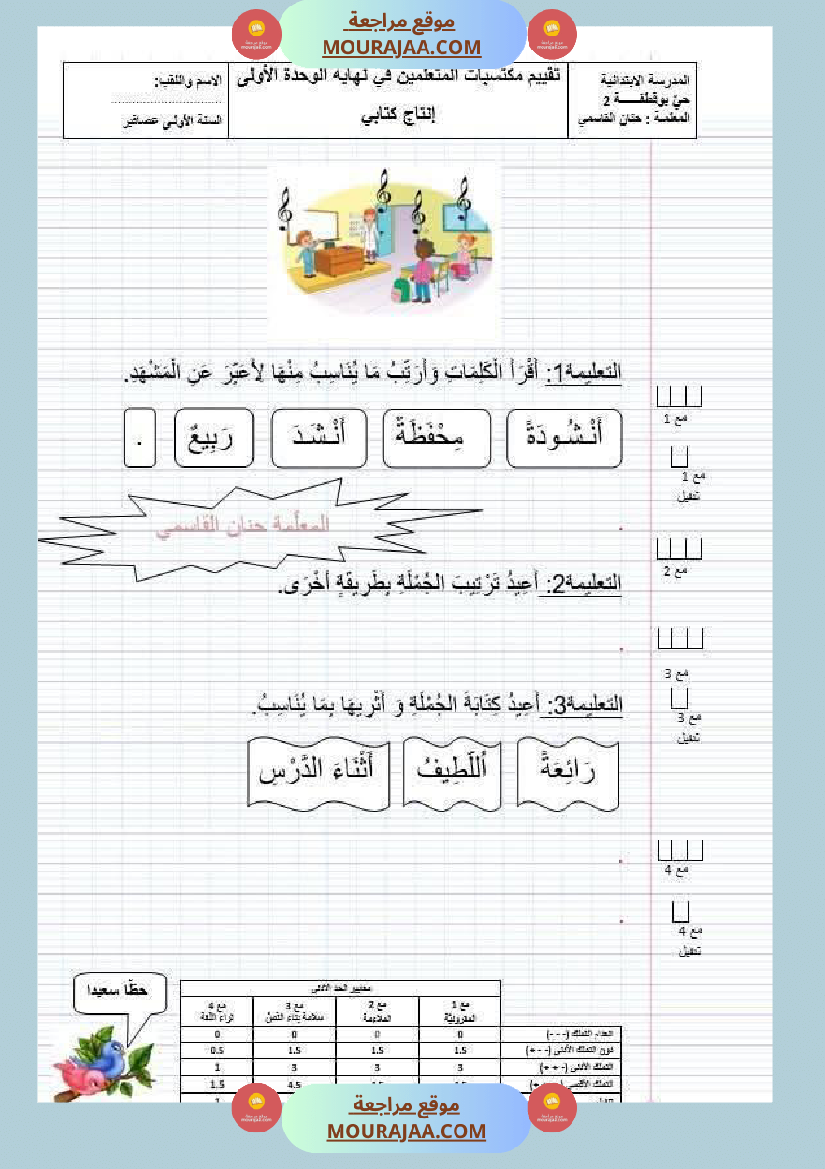 موقع مراجعة
MOURAJAA.COM
المدرسة الابتدائية
حيّ بوقطفـــــة 2
المعلّمة : حنان القاسمي
تقييم مكتسبات المتعلّمين في نهاية الوحدة الأولى
إنتاج كتابي
الاسم واللقب:
..............................
السنة الأولى عصافير
التعليمة1: أَقْرَأُ الْكَلِمَاتِ وَأُرَتِّبُ مَا يُنَاسِبُ مِنْهَا لِأُعَبِّرَ عَنِ الْمَشْهَدِ.
أُنْشُودَةً
مِحْفَظَةٌ
أَنْشَدَ
رَبِيعٌ
.
مع 1
مع 1
تفيل
المعلّمة حنان القاسمي
مع 2
التعليمة2: أُعِيدُ تَرْتِيبَ الجُمْلَةِ بِطَرِيقَةٍ أُخْرَى.
مع 3
مع 3
تفيل
التعليمة3: أُعِيدُ كِتَابَةَ الجُمْلَةِ وَ أُثْرِيهَا بِمَا يُنَاسِبُ.
رَائِعَةً
اُللَّطِيفُ
أَثْنَاءَ الدَّرْسِ
مع 4
مع 4
تفيل
حظّا سعيدا
معايير الحد الأدنى
مع 1
المقروئيّة
مع 2
الملاءمة
مع 3
سلامة بناء النصّ
مع 4
ثراء اللّغة
انعدام التملّك (- - -) 0 0 0 0
دون التملّك الأدنى (+ - -) 1.5 1.5 1.5 0.5
التملّك الأدنى (+ + -) 3 3 3 1
التملّك الأقصى 4.5 1.5
موقع مراجعة
MOURAJAA.COM